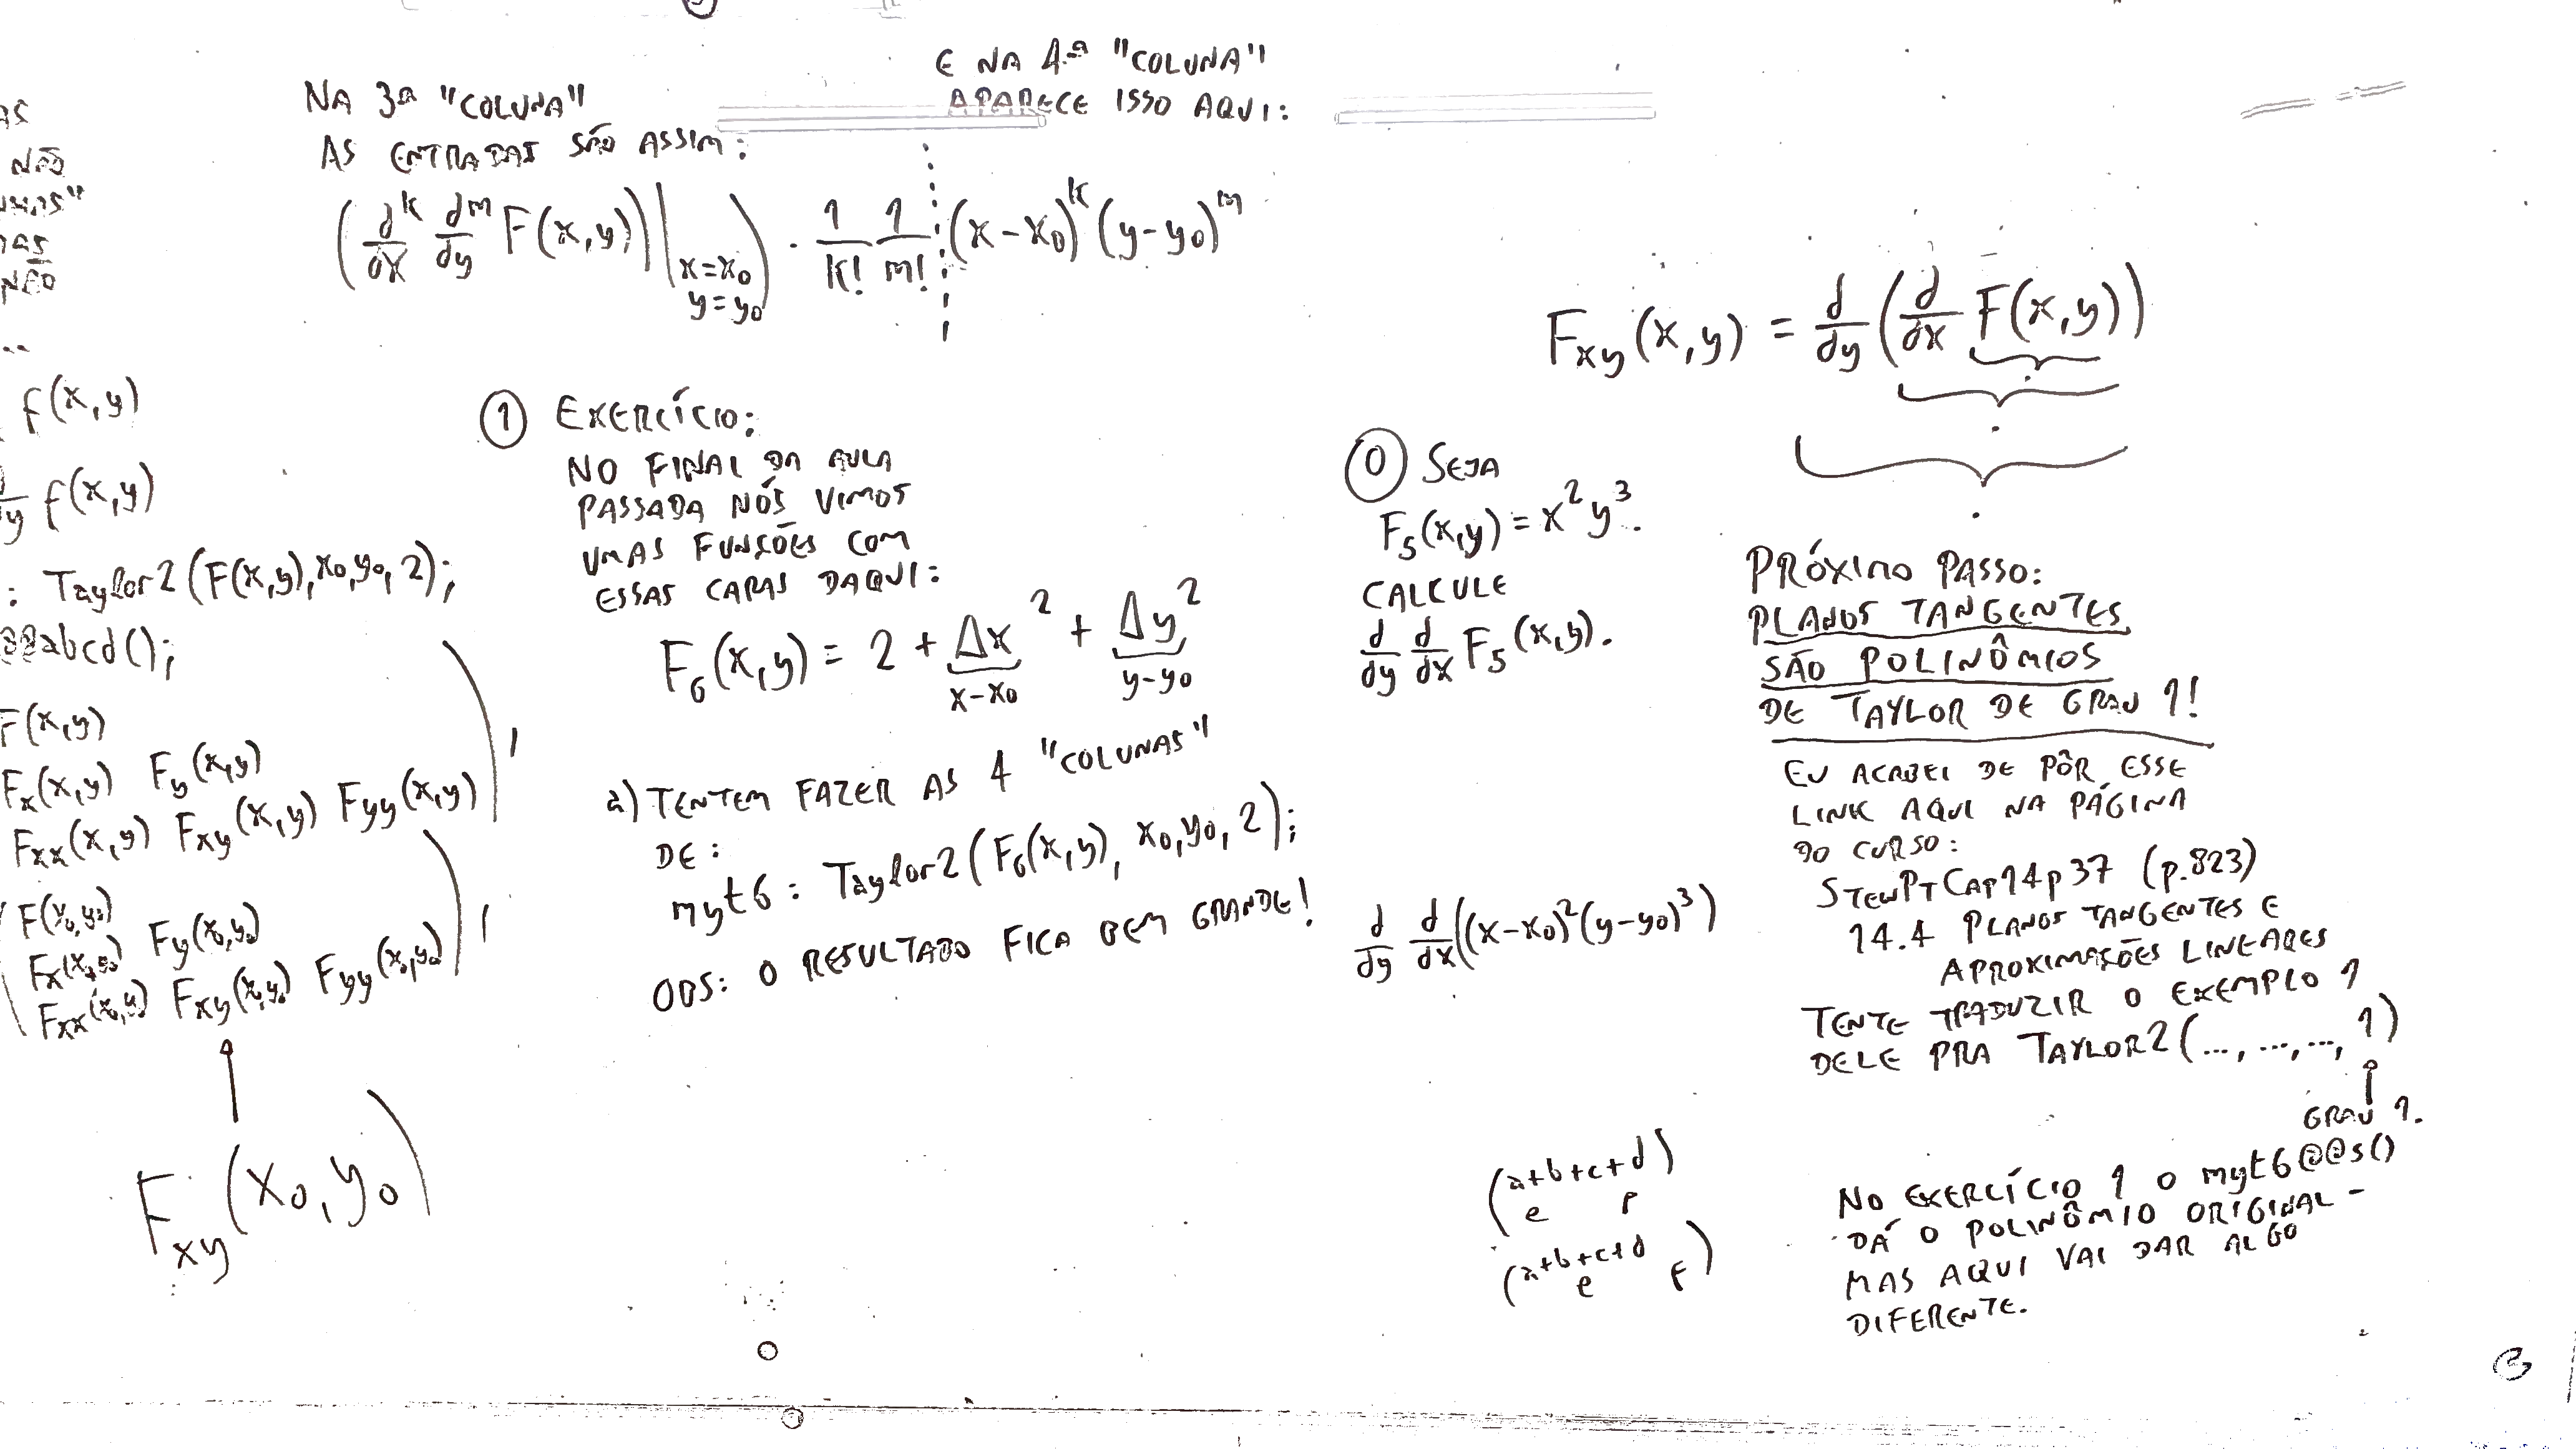 NÃO
f(x,y)
f(x,y)
: Taylor2(F(x,y),x0,y0,2);
@@abcd();
F(x,y)
Fx(x,y) Fy(x,y)
Fxx(x,y) Fxy(x,y) Fyy(x,y)
F(x0,y0)
Fx(x0,y0) Fy(x0,y0)
Fxx(x0,y0) Fxy(x0,y0) Fyy(x0,y0)
Fxy(x0,y0)
NA 3ª "COLUNA"
AS ENTRADAS SÃO ASSIM:
E NA 4ª "COLUNA"
APARECE ISSO AQUI:
(d^k/dx d^m/dy F(x,y))|x=x0 y=y0) · 1/k! 1/m! (x-x0)^k (y-y0)^m
1 EXERCÍCIO:
NO FINAL DA AULA
PASSADA NÓS VIMOS
UMAS FUNÇÕES COM
ESSAS CARAS DAQUI:
F6(x,y) = 2 + Δx² + Δy²
x-x0 y-y0
a) TENTEM FAZER AS 4 "COLUNAS"
DE:
myt6: Taylor2(F6(x,y), x0,y0,2);
OBS: O RESULTADO FICA BEM GRANDE!
Fxy(x,y) = d/dy (d/dx F(x,y))
0 SEJA
F5(x,y) = x²y³.
CALCULE
d/dy d/dx F5(x,y).
d/dy d/dx((x-x0)²(y-y0)³)
(a+b+c+d)
e f
(a+b+c+d
e f)
PRÓXIMO PASSO:
PLANOS TANGENTES
SÃO POLINÔMIOS
DE TAYLOR DE GRAU 1!
EU ACABEI DE PÔR ESSE
LINK AQUI NA PÁGINA
DO CURSO:
STEWPTCAP14p37 (p.823)
14.4 PLANOS TANGENTES E
APROXIMAÇÕES LINEARES
TENTE TRADUZIR O EXEMPLO 1
DELE PRA TAYLOR2(..., ..., ..., 1)
GRAU 1.
NO EXERCÍCIO 1 O myt6@@s()
DÁ O POLINÔMIO ORIGINAL –
MAS AQUI VAI DAR ALGO
DIFERENTE.